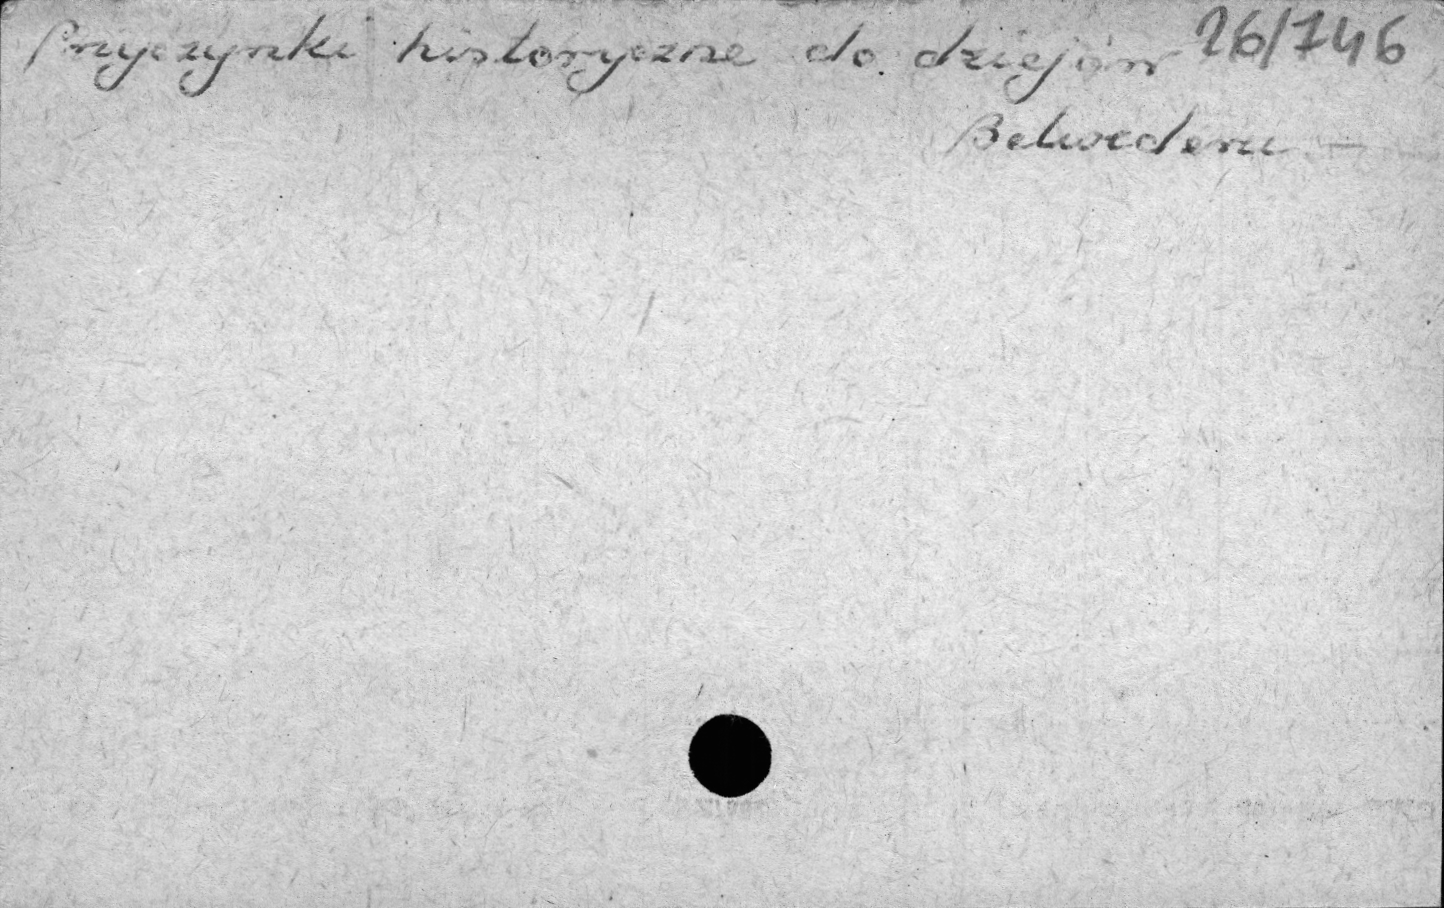 Przyczynki historyczne do dziejów 26/746
Belwederu —